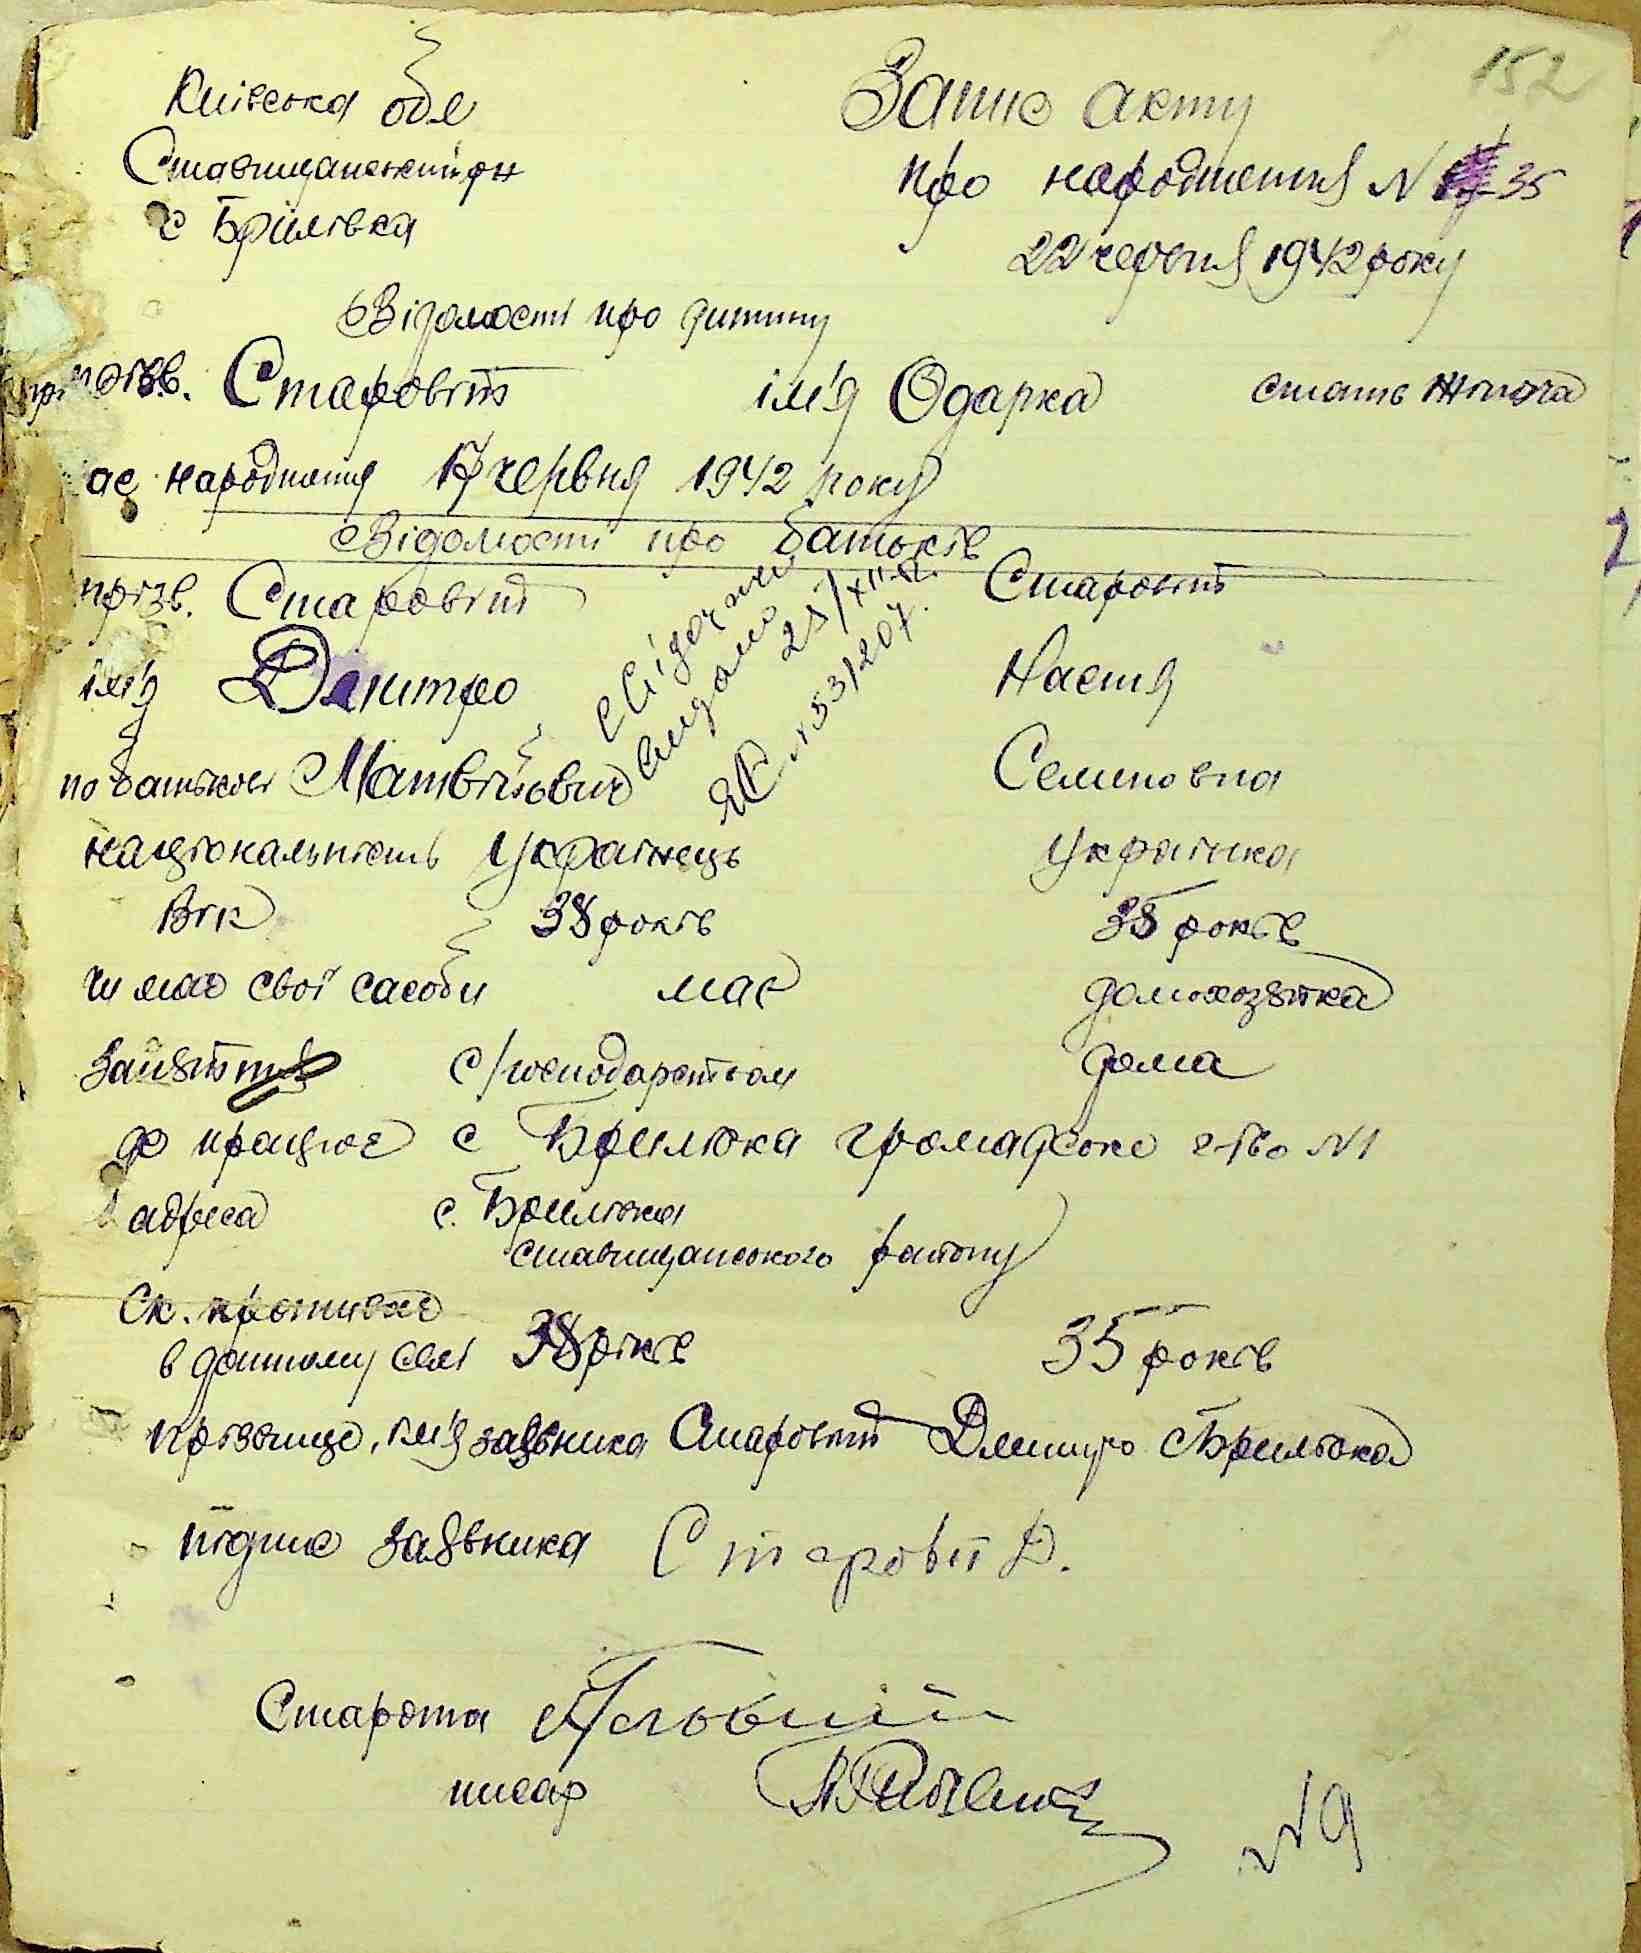 152
Київська обл
Ставищанський рн
с Брилівка
Запис акту
про народження N 35
22 червня 1942 року
Відомості про дитину
прізв. Старовіт ім'я Одарка стать жіноча
час народження 17 червня 1942 року
Відомості про батьків
прізв. Старовіт Старовіт
ім'я Дмитро Настя
по батькові Матвійович Семеновна
національність Українець Українка
Вік 38 років 35 років
чи має свої засоби має домохозяйка
Заняття с/господарством дома
де працює с Брилівка громадське г-тво N1
адреса с. Брилівка
Ставищанського району
Ск. проживає
в данному селі 38 років 35 років
прізвище, ім'я заявника Старовіт Дмитро с Брилівка
підпис заявника Старовіт Д.
Староста
писар
N 9
Свідоцтво
видано 25/XII-52.
N 53/207.